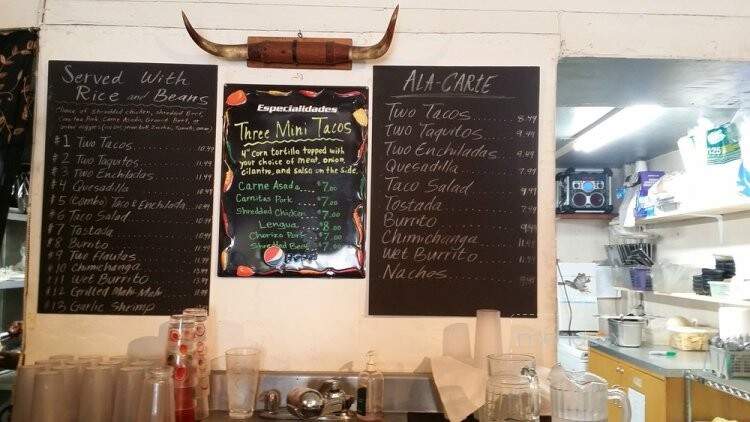 Served With
Rice and Beans
choice of shredded chicken, shredded Beef,
Carnitas Pork, Carne Asada, Ground Beef, or
#1 Two Tacos
#2 Two Taquitos
#3 Two Enchiladas
#4 Quesadilla
#5 (Combo) Taco & Enchilada
#6 Taco Salad
#7 Tostada
#8 Burrito
#9 Two Flautas
#10 Chimichanga
#11 Wet Burrito
#12 Grilled Mahi-Mahi
#13 Garlic Shrimp
Especialidades
Three Mini Tacos
4" corn tortilla topped with
your choice of meat, onion,
cilantro, and salsa on the side.
Carne Asada $7.00
Carnitas Pork $7.00
Shredded Chicken $7.00
Lengua $8.00
Chorizo Pork $7.00
Shredded Beef $7.00
pepsi
ALA-CARTE
Two Tacos 8.49
Two Taquitos 9.49
Two Enchiladas 9.49
Quesadilla 7.99
Taco Salad
Tostada 7.49
Burrito 9.49
Chimichanga 11.49
Wet Burrito 11.49
Nachos